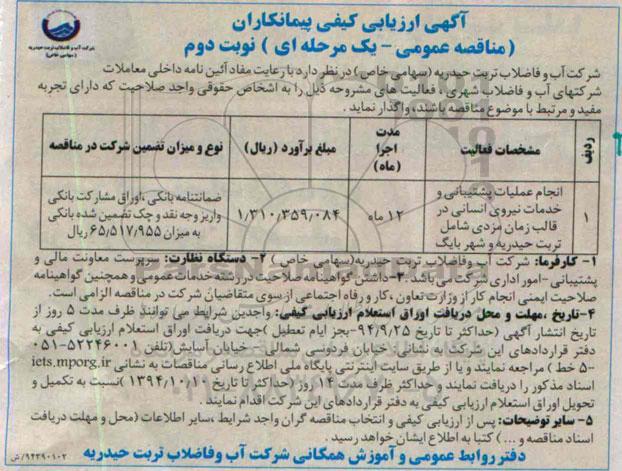 آگهی ارزیابی کیفی پیمانکاران
( مناقصه عمومی - یک مرحله ای ) نوبت دوم
شرکت آب و فاضلاب تربت حیدریه
(سهامی خاص)
شرکت آب و فاضلاب تربت حیدریه (سهامی خاص) در نظر دارد با رعایت مفاد آئین نامه داخلی معاملات
شرکتهای آب و فاضلاب شهری ، فعالیت های مشروحه ذیل را به اشخاص حقوقی واجد صلاحیت که دارای تجربه
مفید و مرتبط با موضوع مناقصه باشند، واگذار نماید .
ردیف
مشخصات فعالیت
مدت اجرا (ماه)
مبلغ برآورد (ریال)
نوع و میزان تضمین شرکت در مناقصه
۱
انجام عملیات پشتیبانی و
خدمات نیروی انسانی در
قالب زمان مزدی شامل
تربت حیدریه و شهر بایگ
۱۲ ماه
۱/۳۱۰/۳۵۹/۰۸۴
ضمانتنامه بانکی ،اوراق مشارکت بانکی
واریز وجه نقد و چک تضمین شده بانکی
به میزان ۶۵/۵۱۷/۹۵۵ ریال
۱- کارفرما: شرکت آب وفاضلاب تربت حیدریه(سهامی خاص ) ۲- دستگاه نظارت: سرپرست معاونت مالی و
پشتیبانی -امور اداری شرکت می باشد. ۳- داشتن گواهینامه صلاحیت در رشته خدمات عمومی و همچنین گواهینامه
صلاحیت ایمنی انجام کار از وزارت تعاون ،کار و رفاه اجتماعی از سوی متقاضیان شرکت در مناقصه الزامی است.
۴-تاریخ ،مهلت و محل دریافت اوراق استعلام ارزیابی کیفی: واجدین شرایط می توانند ظرف مدت ۵ روز از
تاریخ انتشار آگهی (حداکثر تا تاریخ ۹۴/۹/۲۵-بجز ایام تعطیل )جهت دریافت اوراق استعلام ارزیابی کیفی به
دفتر قراردادهای این شرکت به نشانی: خیابان فردوسی شمالی - خیابان آسایش(تلفن ۵۲۲۴۶۰۰۱-۰۵۱
-۵ خط ) مراجعه نمایند و یا از طریق سایت اینترنتی پایگاه ملی اطلاع رسانی مناقصات به نشانی iets.mporg.ir
اسناد مذکور را دریافت نمایند و حداکثر ظرف مدت ۱۴ روز (حداکثر تا تاریخ ۱۳۹۴/۱۰/۱۰ )نسبت به تکمیل و
تحویل اوراق استعلام ارزیابی کیفی به دفتر قراردادهای این شرکت اقدام نمایند .
۵- سایر توضیحات: پس از ارزیابی کیفی و انتخاب مناقصه گران واجد شرایط ،سایر اطلاعات (محل و مهلت دریافت
اسناد مناقصه و ... ) کتبا به اطلاع ایشان خواهد رسید .
دفتر روابط عمومی و آموزش همگانی شرکت آب وفاضلاب تربت حیدریه
۹۴۳۹۰۱۰۲/ش